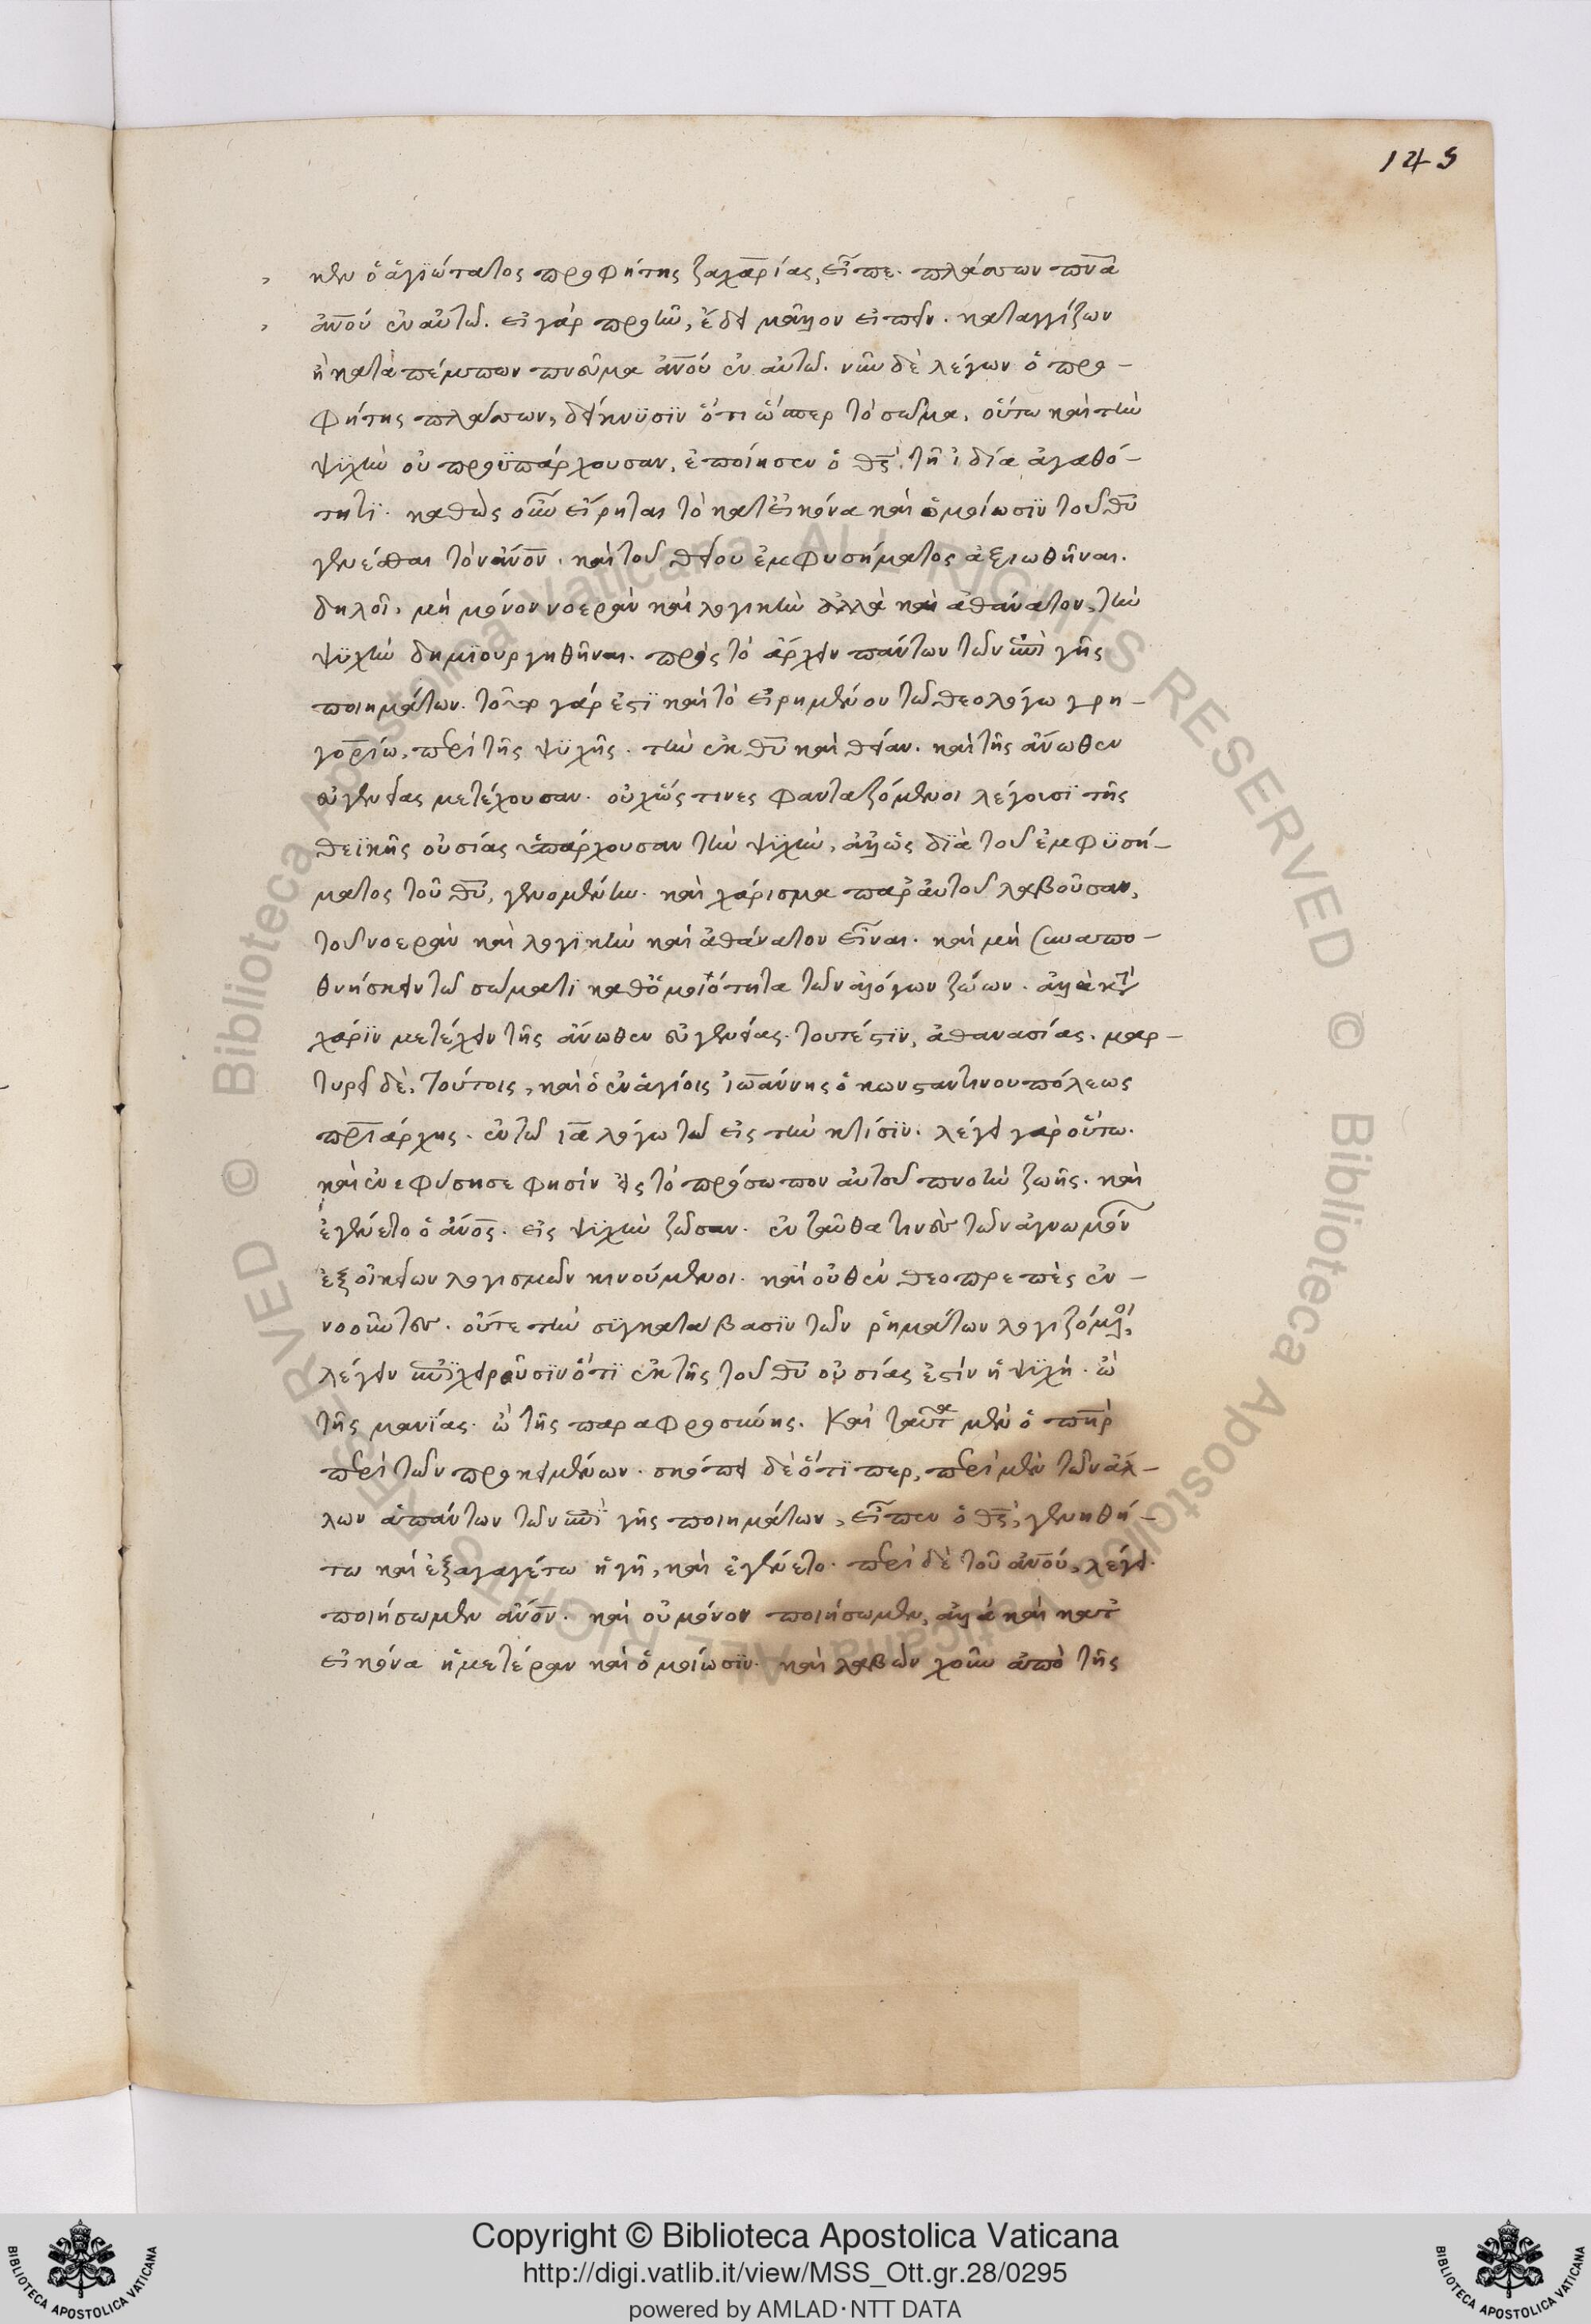 145
κεν ὁ ἁγιώτατος προφήτης ζαχαρίας, εἶπε. πλάσσων πν̅α
ἀν̅ου ἐν αὐτῶ. εἰ γὰρ προῆν, ἔδει μᾶλλον εἰπεῖν. καταγγίζων
ἢ καταπέμπων πνεῦμα ἀν̅ου ἐν αὐτῶ. νῦν δὲ λέγων ὁ προ-
φήτης πλάσσων, δείκνυσϊν ὅτι ὥσπερ τὸ σῶμα, οὕτω καὶ τὴν
ψϋχὴν οὐ προϋπάρχουσαν, ἐποίησεν ὁ θς̅, τῆ ἰδία ἀγαθό-
τητϊ. καθὼς οὖν εἴρηται τὸ κατ εἰκόνα καὶ ὁμοίωσϊν τοῦ θυ̅
γενέσθαι τὸν ἀν̅ον. καὶ τοῦ θείου ἐμφυσήματος ἀξιωθῆναι.
δηλοῖ, μὴ μόνον νοερὰν καὶ λογικὴν ἀλλὰ καὶ ἀθάνατον, τὴν
ψϋχὴν δημϊουργηθῆναι. πρὸς τὸ ἄρχειν πάντων τῶν ἐπὶ γῆς
ποιημάτων. τοῦτο γάρ ἐστϊ καὶ τὸ εἰρημένον τῶ θεολόγω γρη-
γορίω, περὶ τῆς ψϋχῆς. τὴν ἐκ θυ̅ καὶ θείαν. καὶ τῆς ἄνωθεν
εὐγενείας μετέχουσαν. οὐχ ὥς τινες φανταζόμενοι λέγουσϊ τῆς
θεϊκῆς οὐσίας ὑπάρχουσαν τὴν ψϋχὴν, ἀλλ ὡς δϊὰ τοῦ ἐμφϋσή-
ματος τοῦ θυ̅, γενομένην. καὶ χάρισμα παρ αὐτοῦ λαβοῦσαν,
τοῦ νοερὰν καὶ λογϊκὴν καὶ ἀθάνατον εἶναι. καὶ μὴ συναπο-
θνήσκειν τῶ σώματϊ καθ ὁμοιότητα τῶν ἀλόγων ζώων. ἀλλὰ κατὰ
χάρϊν μετέχειν τῆς ἄνωθεν εὐγενείας. τουτέστϊν, ἀθανασίας. μαρ-
τυρεῖ δὲ, τούτοις, καὶ ὁ ἐν ἁγίοις ἰωάννης ὁ κωνσταντινουπόλεως
πρϊάρχης. ἐν τῶ ια̅ λόγω τῶ εἰς τὴν κτίσϊν. λέγει γὰρ οὕτω.
καὶ ἐνεφύσησε φησίν εἰς τὸ πρόσωπον αὐτοῦ πνοὴν ζωῆς. καὶ
ἐγένετο ὁ ἀν̅ος. εἰς ψϋχὴν ζῶσαν. ἐνταῦθα τινὲς τῶν ἀγνωμόνων
ἐξ οἰκείων λογισμῶν κινούμενοι. καὶ οὐθὲν θεοπρεπὲς ἐν-
νοοῦντες. οὔτε τὴν σϋγκατάβασϊν τῶν ῥημάτων λογιζόμενοι,
λέγειν ἐπϊχειροῦσϊν ὅτϊ ἐκ τῆς τοῦ θυ̅ οὐσίας ἐστίν ἡ ψϋχή. ὢ
τῆς μανϊας. ὢ τῆς παραφροσύνης. Καὶ ταῦτα μὲν ὁ πη̅ρ
περὶ τῶν προκειμένων. σκόπει δὲ ὅτϊπερ, περὶ μὲν τῶν ἀλ-
λων ἁπάντων τῶν ἐπὶ γῆς ποιημάτων, εἶπεν ὁ θς̅, γενηθή-
τω καὶ ἐξαγαγέτω ἡ γῆ, καὶ ἐγένετο. περὶ δὲ τοῦ ἀν̅ου, λέγει.
ποιήσωμεν ἀν̅ον. καὶ οὐ μόνον ποιήσωμεν, ἀλλὰ καὶ κατ
εἰκόνα ἡμετέραν καὶ ὁμοίωσϊν. καὶ λαβὼν χοῦν ἀπὸ τῆς
Biblioteca Apostolica Vaticana ALL RIGHTS RESERVED ©
Copyright © Biblioteca Apostolica Vaticana
http://digi.vatlib.it/view/MSS_Ott.gr.28/0295
powered by AMLAD·NTT DATA
BIBLIOTECA APOSTOLICA VATICANA
BIBLIOTECA APOSTOLICA VATICANA